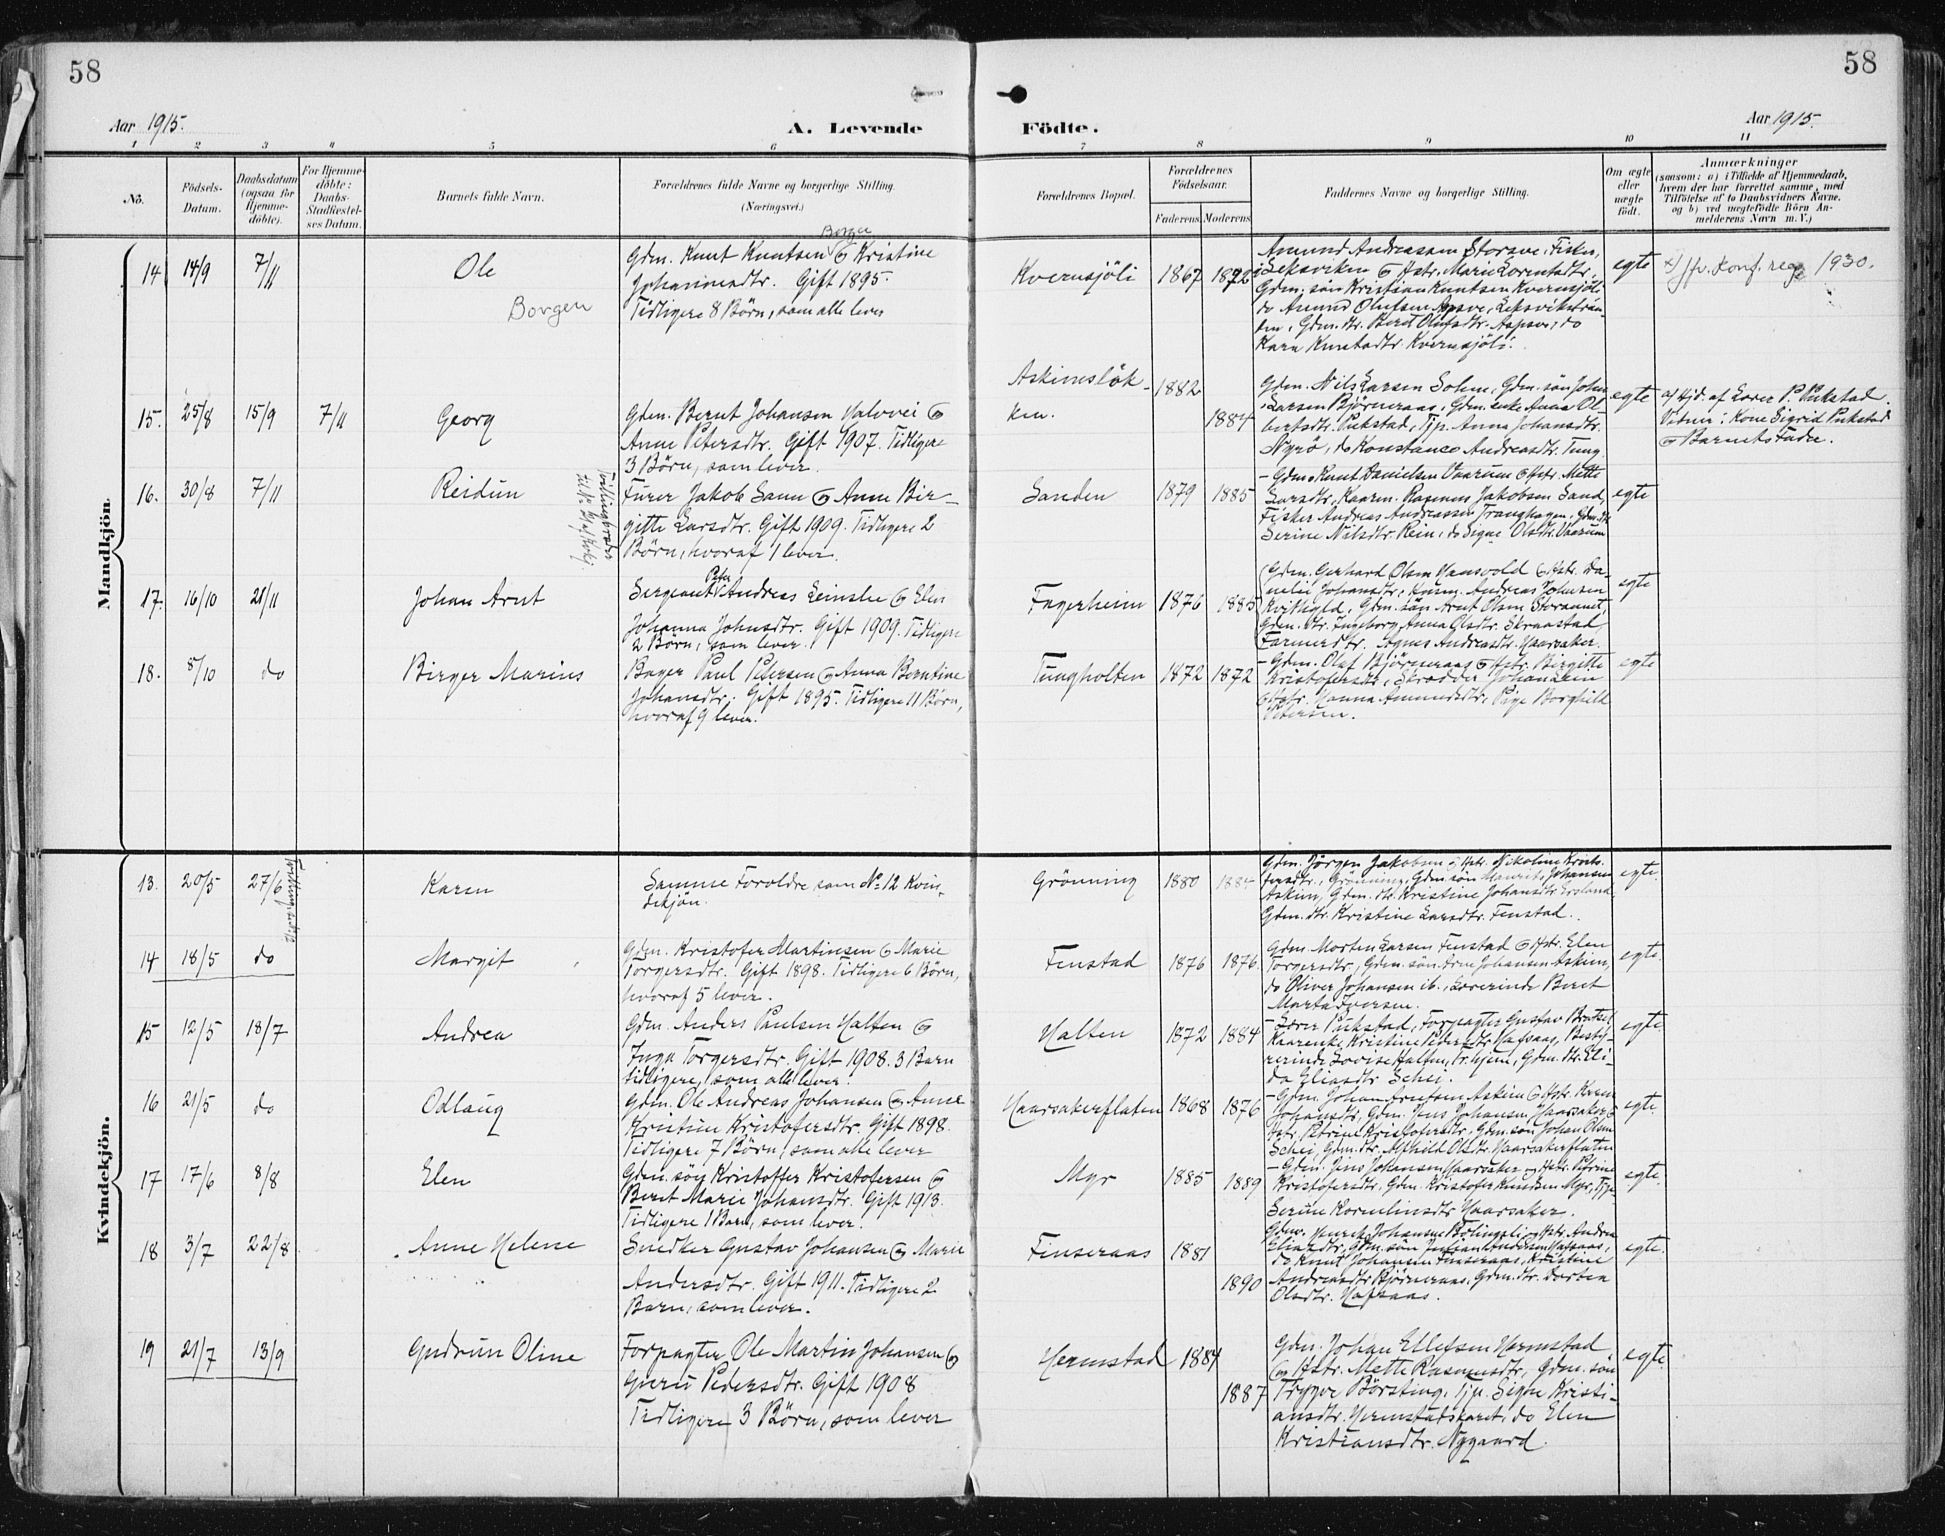 58
58
Aar 1915.
A. Levende
Födte.
Aar 1915.
1 2 3 4 5 6 7 8 9 10 11
No.
Födsels-
Datum.
Daabsdatum
(ogsaa for
Hjemme-
döbte).
For Hjemme-
döbte:
Daabs-
Stadfæstel-
ses Datum.
Barnets fulde Navn.
Forældrenes fulde Navne og borgerlige Stilling.
(Næringsvei.)
Forældrenes Bopæl.
Forældrenes
Födselsaar.
Faderens. Moderens.
Faddernes Navne og borgerlige Stilling.
Om ægte
eller
uægte
födt.
Anmærkninger
(saasom: a) i Tilfælde af Hjemmedaab,
hvem der har forrettet samme, med
Tilföielse af to Daabsvidners Navne.
og b) ved uægtefödte Börn An-
melderens Navn m. V.)
Mandkjön.
14 14/9 7/11
Ole
Borgen
Borgen
Gdm. Knut Knutsen og Kristine
Johannesdtr. Gift 1895.
Tidligere 8 Börn, som alle lever
Kvernsjöli 1867 1872
Amund Andreassen Storsve, Fisker,
Leksviken og Hstr. Marie Lorentsdtr.,
Gdm. sön Kristian Knutsen Kvernsjöli
do Amund Olufsen Aspsve, Leksvikstran-
den, Gdm. dtr. Beret Olufsdtr. Aspsve, do
Karn Knutsdtr. Kvernsjöli.
egte
jfr. konf. reg. 1930.
15. 25/8 15/9 7/11
Georg
Gdm. Bernt Johansen Halvvei og
Anne Petersdtr. Gift 1907. Tidligere
3 Börn, som lever.
Askimslök-
ken.
1882 1884
Gdm. Nils Larsen Solem, Gdm. sön Johan
Larsen Björneraas, Gdm. enke Anna Ol-
bertsdtr. Pukstad, Tjp. Anna Johansdtr.
Nyrö, do Konstance Andreasdtr. Tung
egte
a) Hjd. af Lærer P. Pukstad.
Vidner: Kone Sigrid Pukstad
og Barnets Fader.
16. 30/8 7/11
Reidun
Furer Jakob Sann og Anne Bir-
gitte Larsdtr. Gift 1909. Tidligere 2
Börn, hvoraf 1 lever.
Sanden 1879 1885
- Gdm. Knut Danielsen Vaarum og Hstr. Mette
Larsdtr., Kaarm. Rasmus Jakobsen Sand,
Fisker Andreas Andreassen Tranghagen, Gdm. dtr.
Serine Nilsdtr. Rein, do Signe Olsdtr. Vaarum
egte
17. 16/10 21/11
Johan Arnt
Sergeant Peter Andreas Leinslie og Elen
Johanna Johnsdtr. Gift 1909. Tidligere
2 Börn, som lever.
Fagerheim 1876 1885
Gdm. Gerhard Olsen Hansvold og Hstr. Da-
nelie Johansdtr., Husm. Andreas Johnsen
Kvithyld, Gdm. sön Arnt Olsen Storaunet,
Gdm. dtr. Ingeborg Anna Olsdtr. Skraastad
Farmerdtr. Agnes Andreasdtr. Haarsaker.
egte
18. 8/10 do
Birger Marius
Bager Paul Petersen og Anna Berntine
Johansdtr. Gift 1895. Tidligere 11 Börn,
hvoraf 9 lever.
Tungholten 1872 1872
- Gdm. Olaf Björneraas og Hstr. Birgitte
Kristofersdtr., Skrædder Johansen
og Hstr. Hanna Amundsdtr., Pige Borghild
Petersen.
egte
Kvindekjön.
13. 20/5 27/6
Karen
Samme Forældre som No 12 Kvin-
dekjön.
Grönning 1880 1884
Gdm. Jörgen Jakobsen og Hstr. Nikoline Kristo-
fersdtr., Grönning, Gdm. sön Maurits Johansen
Askim, Gdm. dtr. Kristine Johansdtr. Eroland,
Gdm. dtr. Kristine Larsdtr. Fenstad.
egte.
14 18/5 do
Margit
Gdm. Kristofer Martinsen og Marie
Torgersdtr. Gift 1898. Tidligere 6 Börn,
hvoraf 5 lever.
Fenstad 1876 1876.
Gdm. Morten Larsen Fenstad og Hstr. Elen
Torgersdtr., Gdm. sön Arne Johansen Askim,
do Oliver Johansen ib., Lærerinde Beret
Marta Iversen.
egte.
15 12/5 18/7
Andrea
Gdm. Anders Paulsen Halten og
Inga Torgersdtr. Gift 1908. 3 Barn
tidligere, som alle lever.
Halten 1872 1884
- Lærer Pukstad, Forpagter Gustav Braten,
Kaarenke Kristine Pedersdtr. Hafsaas, Besty-
rerinde Lovise Halten, Tr.hjem, Gdm. dtr. Eli-
da Eliasdtr. Schei.
egte
16 21/5 do
Odlaug
Gdm. Ole Andreas Johansen og Anne
Kristine Kristofersdtr. Gift 1898.
Tidligere 7 Börn, som alle lever
Haarsakerflaten 1868 1876
- Gdm. Johan Arntsen Askim og Hstr. Karen
Johansdtr., Gdm. Jens Johansen Haarsaker og
Hstr. Petrine Kristofersdtr., Gdm. sön Johan Olsen
Schei, Gdm. dtr. Mathild Olsdtr. Haarsakerflaten
egte.
17 17/6 8/8
Elen
Gdm. sön Kristoffer Kristofersen og
Beret Marie Johansdtr. Gift 1913.
Tidligere 1 Barn, som lever.
Myr 1885 1889
- Gdm. Jens Johansen Haarsaker og Hstr. Petrine
Kristofersdtr., Gdm. Kristofer Knudsen Myr, Tjp.
Serine Kornelinsdtr. Haarsaker.
egte.
18 3/7 22/8
Anne Helene
Snedker Gustav Johansen og Marie
Andersdtr. Gift 1911. Tidligere 2
Barn, som lever.
Finseraas 1881 1890
Eliasdtr., Gdm. sön
do Knut Johansen Finseraas, Kristine
Andreasdtr. Björneraas, Gdm. dtr. Dorthea
Olsdtr. Hafsaas.
egte.
19 21/7 13/9
Gudrun Oline
Forpagter Ole Martin Johansen og
Guru Pedersdtr. Gift 1908
Tidligere 3 Börn, som lever
Hermstad 1884 1887
Gdm. Johan Ellefsen Hermstad
og Hstr. Mette Rasmusdtr., Gdm. sön
Trygve Börsting, Tjp. Signe Kristi-
ansdtr. Hermstadskaret, do Elen
Kristiansdtr. Nygaard.
egte.